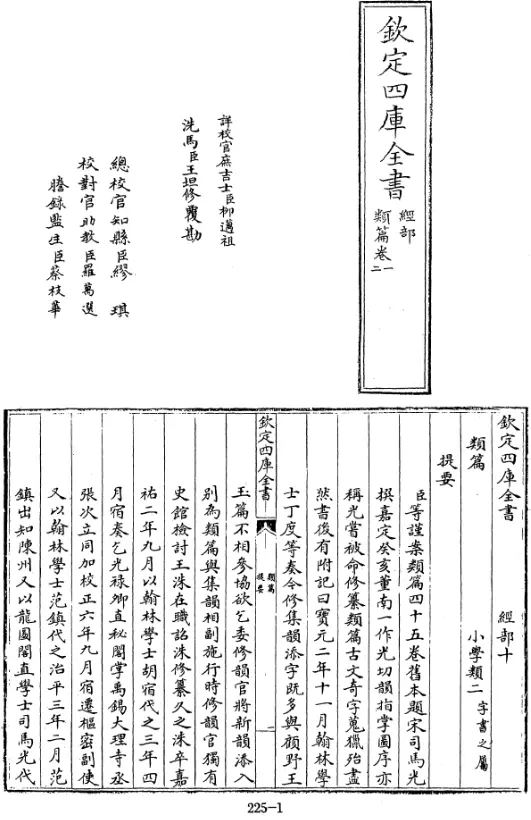 欽定四庫全書
經部
類篇卷一
二
詳校官庶吉士臣柳邁祖
洗馬臣王坦修覆勘
總校官知縣臣繆琪
校對官助教臣羅萬選
謄錄監生臣蔡枝華
欽定四庫全書 經部十
類篇 小學類二字書之屬
提要
臣等謹案類篇四十五卷舊本題宋司馬光
撰嘉定癸亥董南一作光切韻指掌圖序亦
稱光嘗被命修纂類篇古文奇字蒐獵殆盡
然書後有附記曰寶元二年十一月翰林學
士丁度等奏今修集韻添字既多與顧野王
欽定四庫全書
類篇
提要
一
玉篇不相參協欲乞委修韻官將新韻添入
別為類篇與集韻相副施行時修韻官獨有
史館檢討王洙在職詔洙修纂久之洙卒嘉
祐二年九月以翰林學士胡宿代之三年四
月宿奏乞光祿卿直秘閣掌禹錫大理寺丞
張次立同加校正六年九月宿遷樞密副使
又以翰林學士范鎮代之治平三年二月范
鎮出知陳州又以龍圖閣直學士司馬光代
225-1